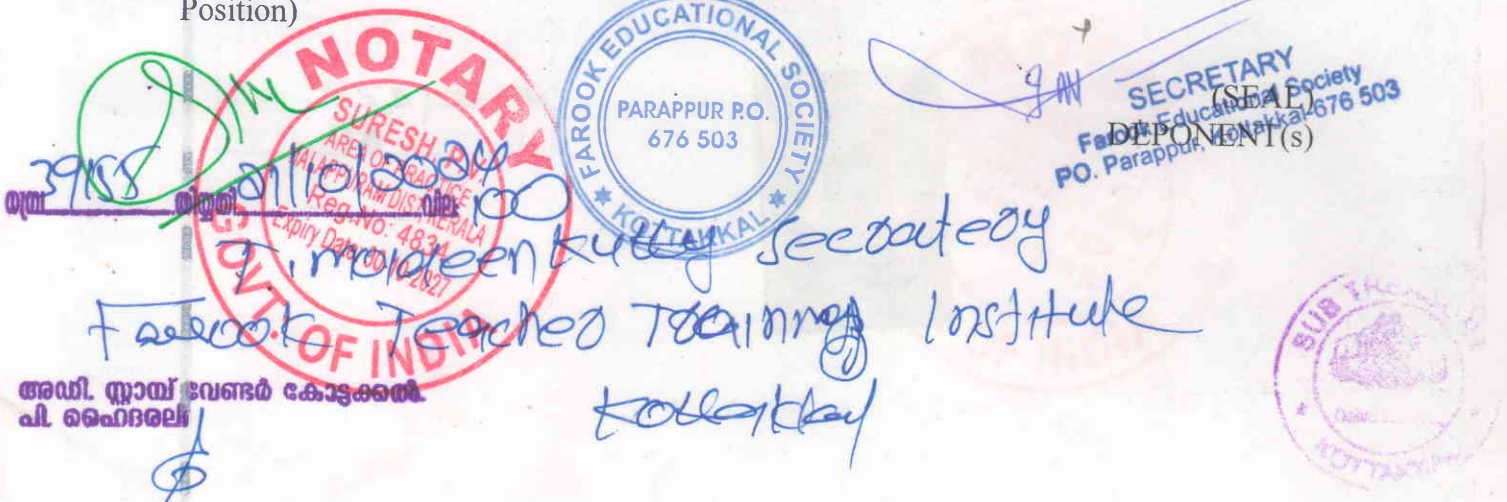 Position)
NOTARY
GOVT. OF INDIA
SURESH P.V
AREA OF PRACTICE
MALAPPURAM DIST. KERALA
Reg.No: 4834
Expiry Date 2027
FAROOK EDUCATIONAL SOCIETY
PARAPPUR P.O.
676 503
KOTTAKKAL
SECRETARY
Farook Educational Society
PO. Parappur, Kottakkal-676 503
(SEAL)
DEPONENT(s)
നമ്പർ 3958 തിയ്യതി 21/10/2024 വില 100
T. moideen Kutty Secratery
Farook Teacher Training Institute
Kottakkal
അഡി. സ്റ്റാമ്പ് വേണ്ടർ കോട്ടക്കൽ.
പി. ഹൈദരലി
SUB
KOTTAKKAL